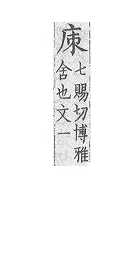 㡹七賜切博雅
舍也文一